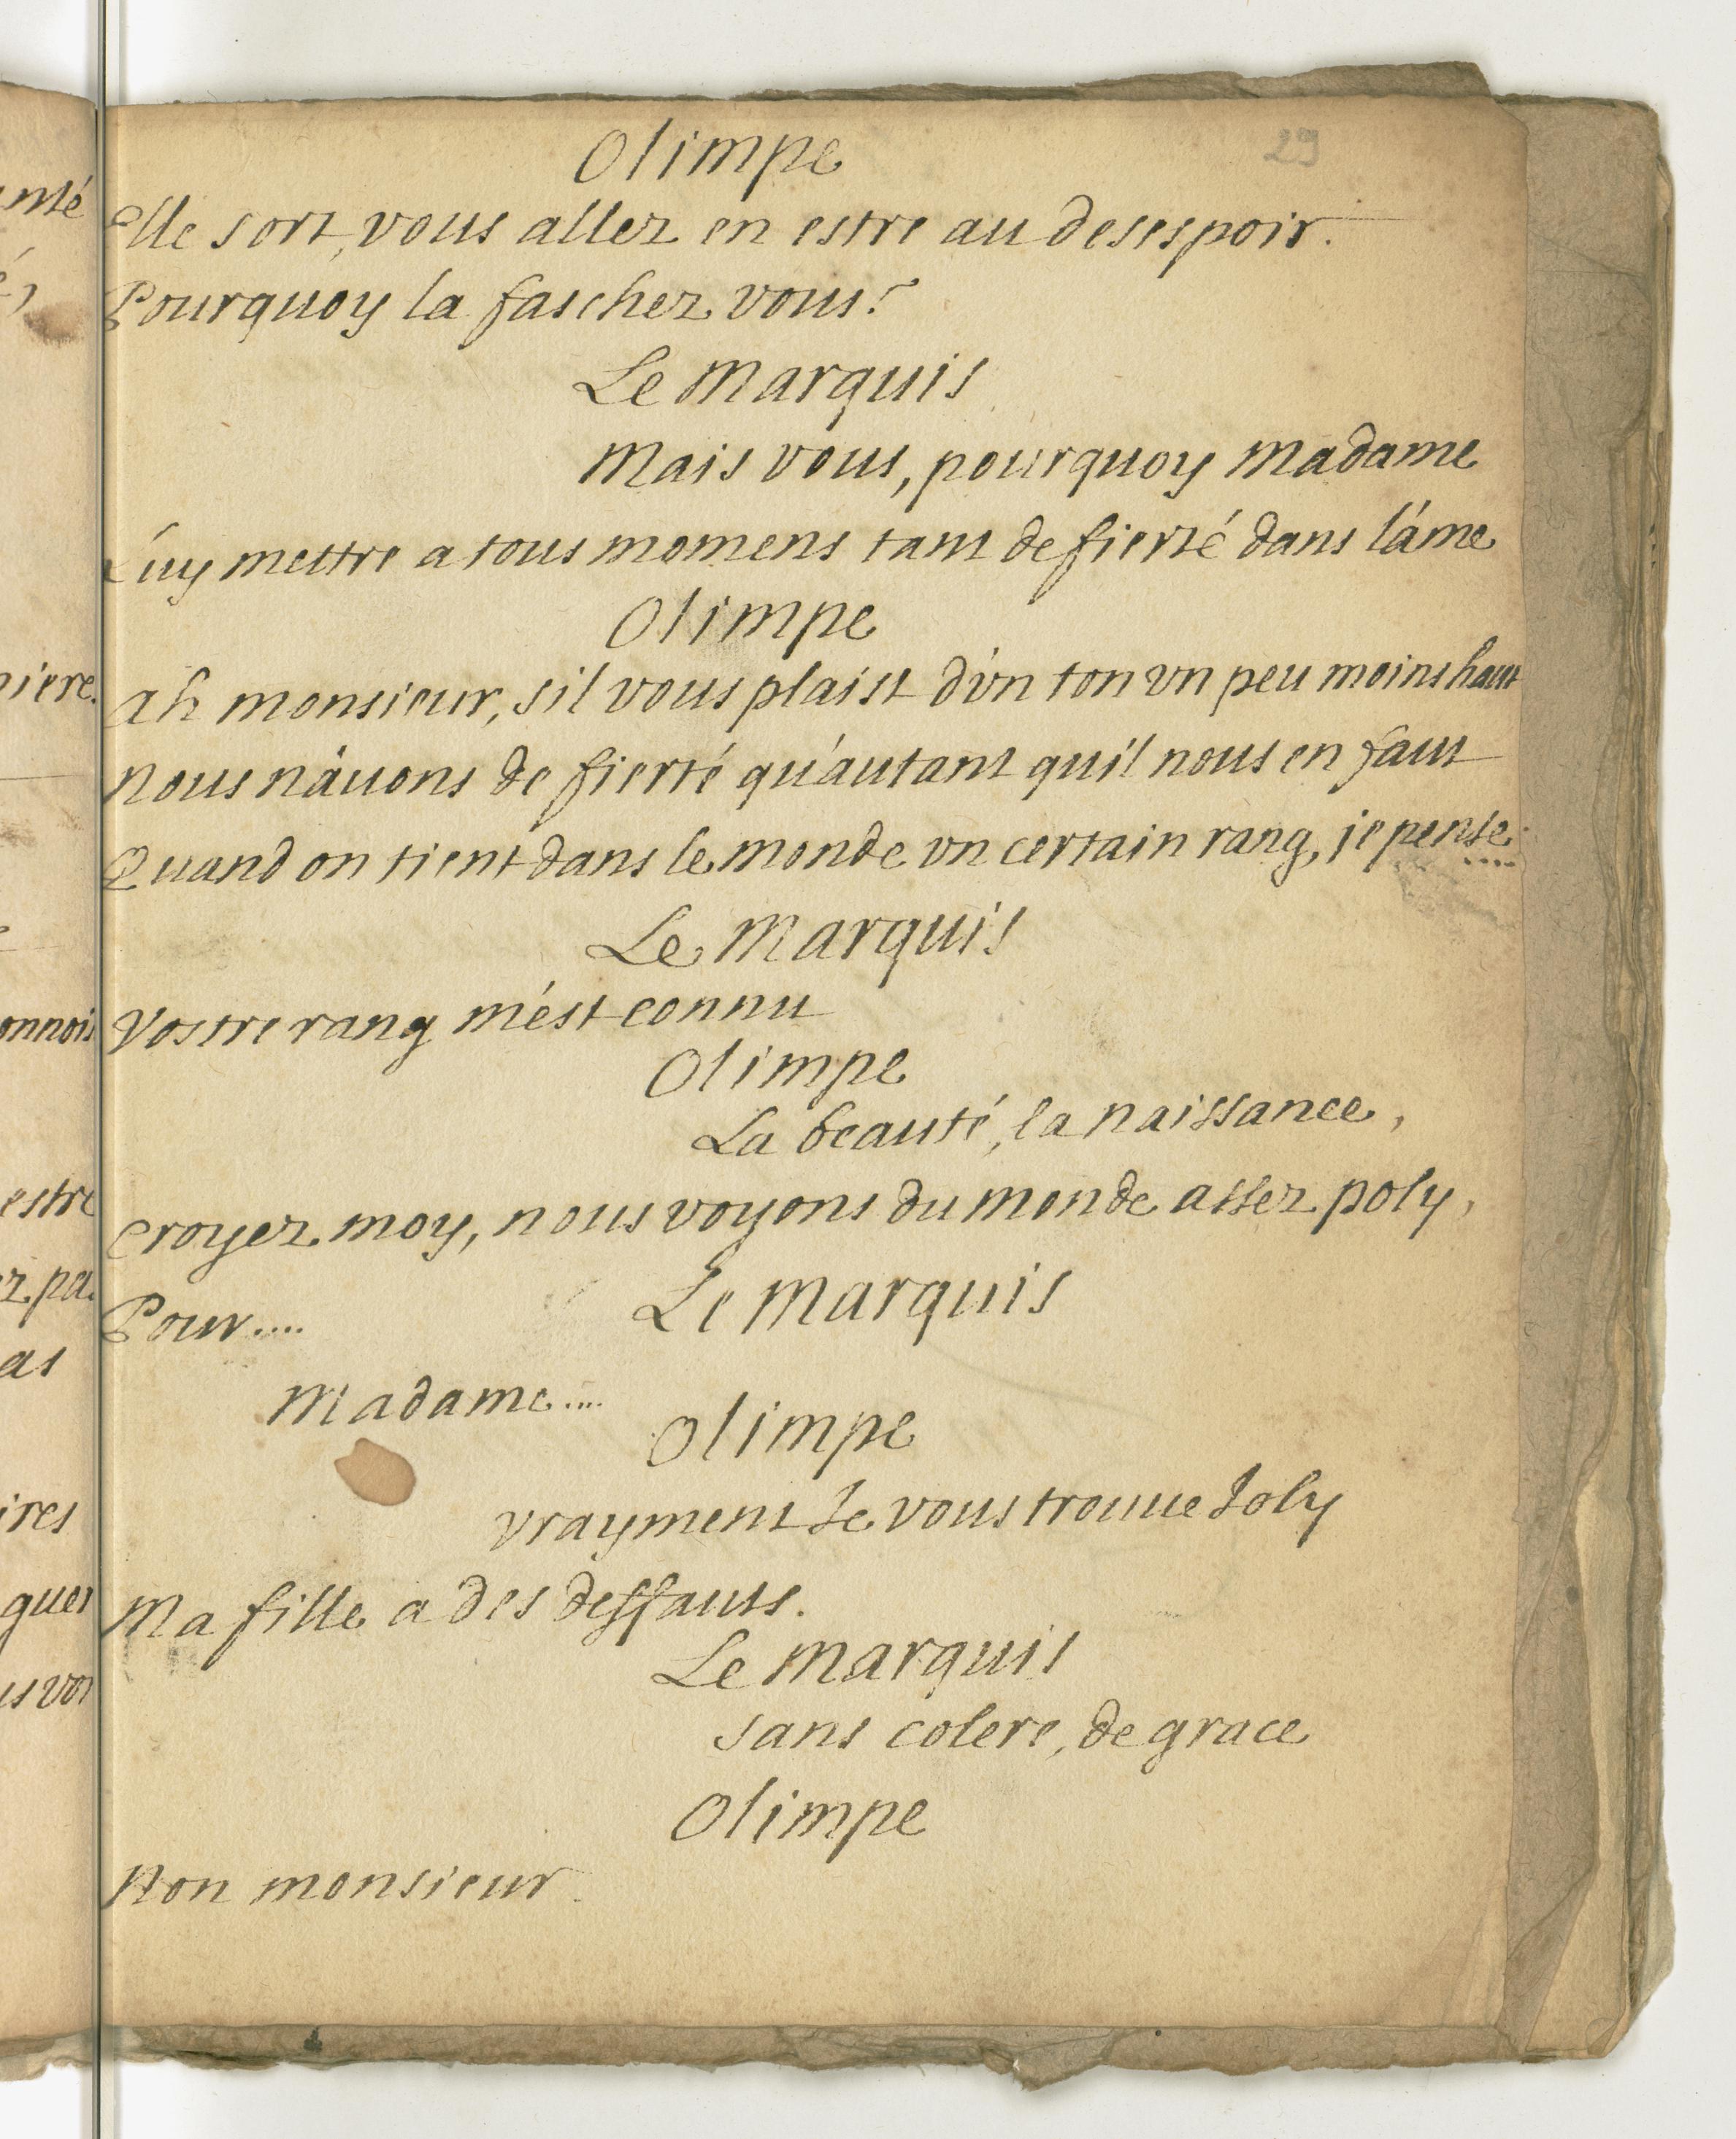 29
Olimpe
Elle sort, vous allez en estre au desespoir.
Pourquoy la faschez vous?
Le Marquis
Mais vous, pourquoy Madame
Luy mettre a tous momens tant de fierté dans l'áme
Olimpe
Ah monsieur, s'il vous plaist d'vn ton vn peu moins haut
Nous n'auons de fierté qu'autant qu'il nous en faut
Quand on tient dans le monde vn certain rang, je pense....
Le Marquis
Vostre rang m'est connu
Olimpe
La beauté, la naissance,
Croyez moy, nous voyons du monde assez poly,
Pour....
Le Marquis
Madame....
Olimpe
vrayment Je vous trouue Joly
Ma fille a des deffauts.
Le Marquis
sans colere, de grace
Olimpe
Non monsieur.
nté
niere.
onnois
estre
ez pa
as
ires
quer
us voi